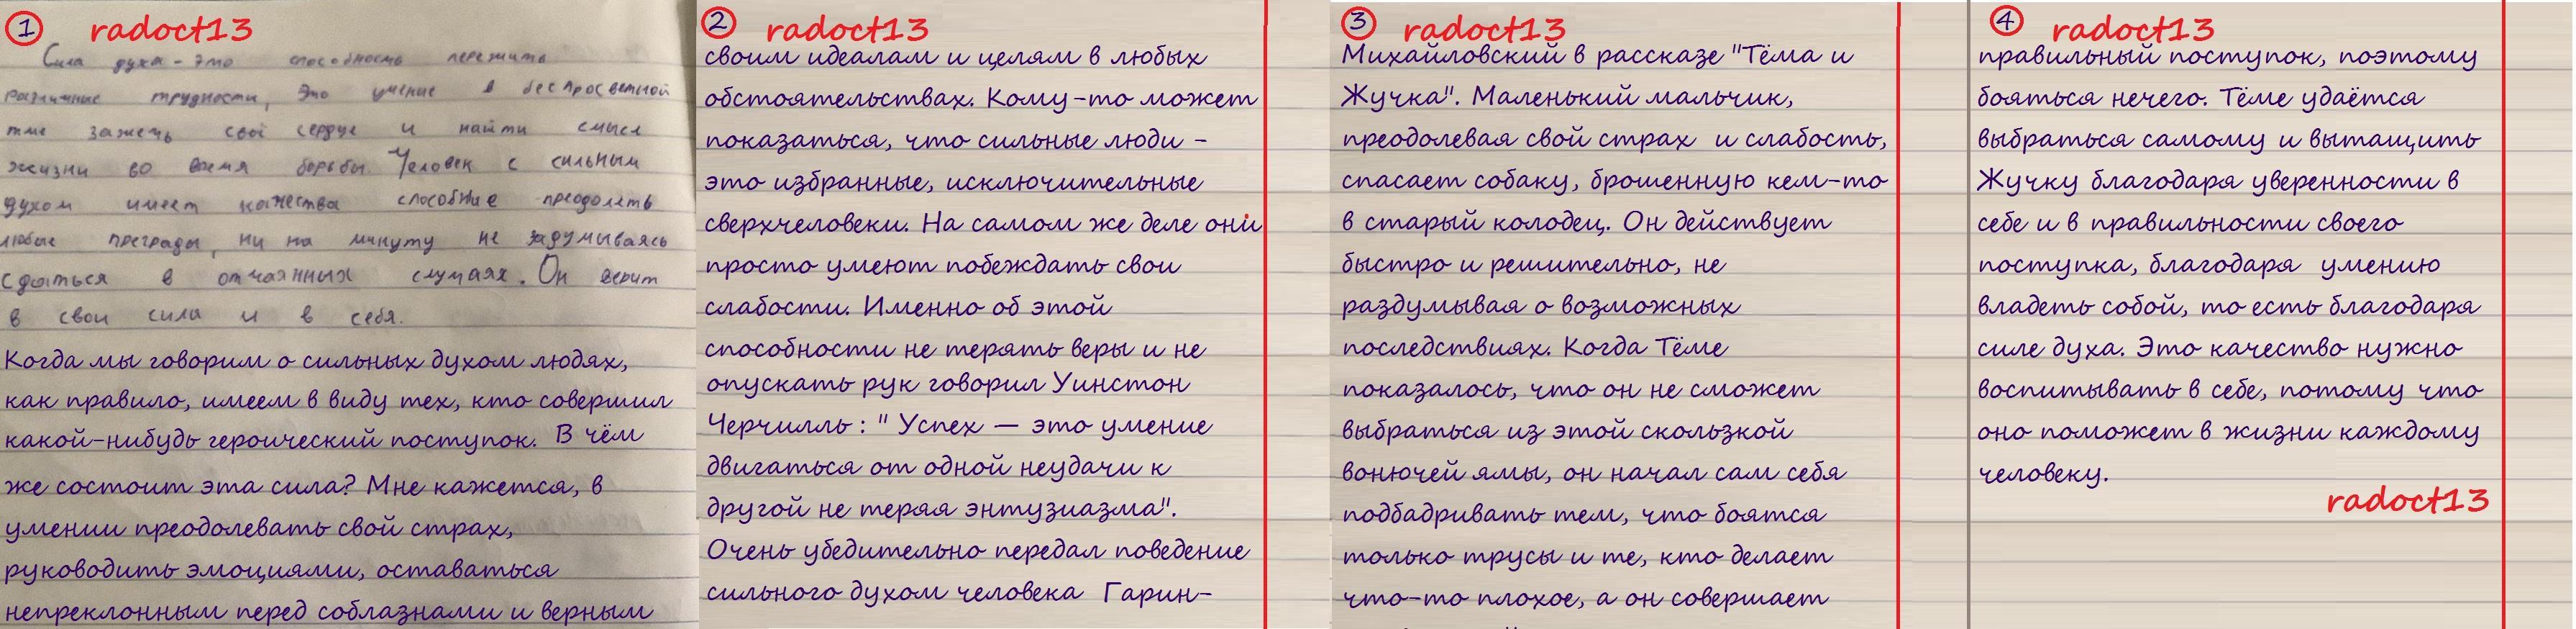 1 radoct13
Сила духа - это способность пережить
различные трудности, Это умение в беспросветной
тме зажечь своё сердце и найти смысл
жизни во время борьбы. Человек с сильным
духом имеет качества способные преодолеть
любые преграды, ни на минуту не задумываясь
сдаться в отчаянных случаях. Он верит
в свои сила и в себя.
Когда мы говорим о сильных духом людях,
как правило, имеем в виду тех, кто совершил
какой-нибудь героический поступок. В чём
же состоит эта сила? Мне кажется, в
умении преодолевать свой страх,
руководить эмоциями, оставаться
непреклонным перед соблазнами и верным
2 radoct13
своим идеалам и целям в любых
обстоятельствах. Кому-то может
показаться, что сильные люди -
это избранные, исключительные
сверхчеловеки. На самом же деле они
просто умеют побеждать свои
слабости. Именно об этой
способности не терять веры и не
опускать рук говорил Уинстон
Черчилль : " Успех — это умение
двигаться от одной неудачи к
другой не теряя энтузиазма".
Очень убедительно передал поведение
сильного духом человека Гарин-
3 radoct13
Михайловский в рассказе "Тёма и
Жучка". Маленький мальчик,
преодолевая свой страх и слабость,
спасает собаку, брошенную кем-то
в старый колодец. Он действует
быстро и решительно, не
раздумывая о возможных
последствиях. Когда Тёме
показалось, что он не сможет
выбраться из этой скользкой
вонючей ямы, он начал сам себя
подбадривать тем, что боятся
только трусы и те, кто делает
что-то плохое, а он совершает
4 radoct13
правильный поступок, поэтому
бояться нечего. Тёме удаётся
выбраться самому и вытащить
Жучку благодаря уверенности в
себе и в правильности своего
поступка, благодаря умению
владеть собой, то есть благодаря
силе духа. Это качество нужно
воспитывать в себе, потому что
оно поможет в жизни каждому
человеку.
radoct13